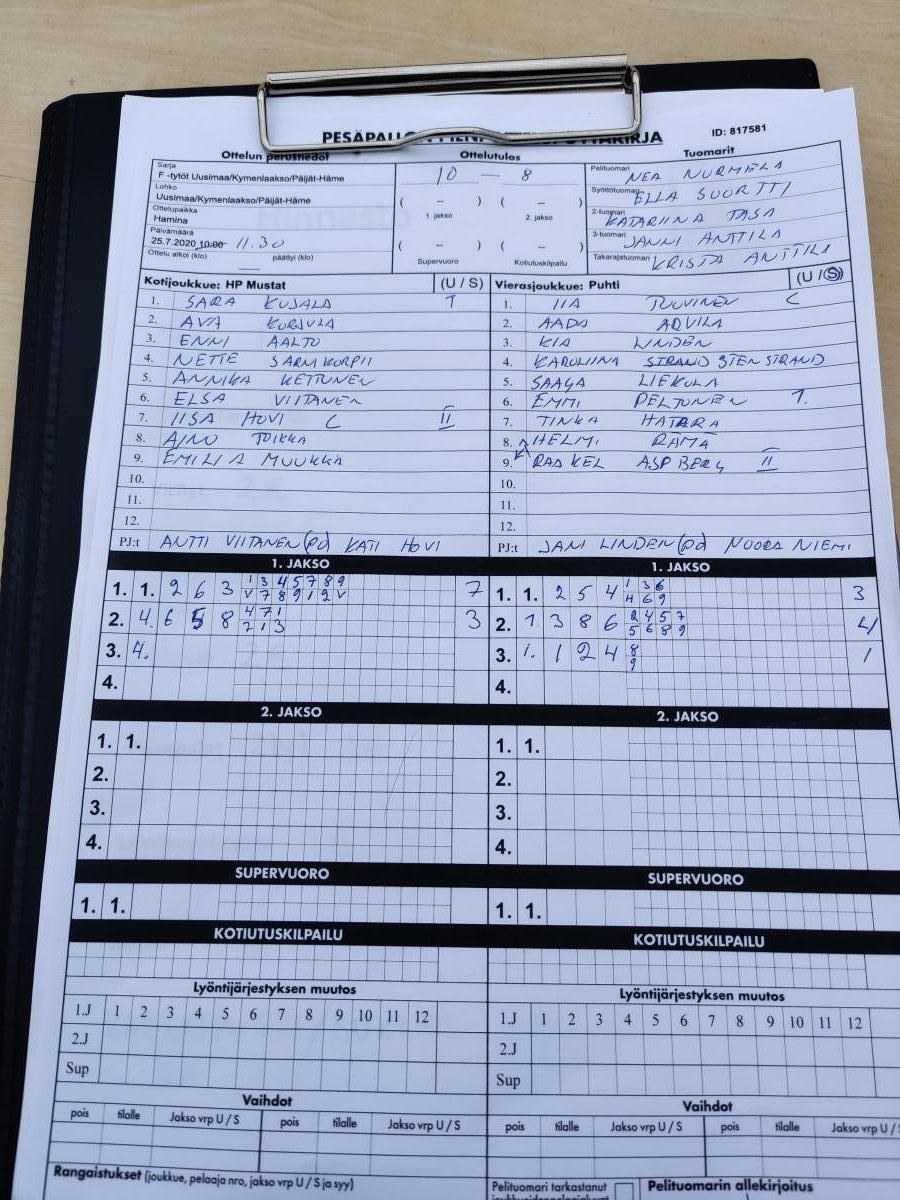 ID: 817581
Ottelun perustiedot Ottelutulos Tuomarit
Sarja
F -tytöt Uusimaa/Kymenlaakso/Päijät-Häme
Lohko
Uusimaa/Kymenlaakso/Päijät-Häme
Ottelupaikka
Hamina
Päivämäärä
25.7.2020 10:00 11.30
Ottelu alkoi (klo) päättyi (klo)
10 — 8
( – ) ( – )
1. jakso 2. jakso
( – ) ( – )
Supervuoro Kotiutuskilpailu
Pelituomari NEA NURMELA
Syöttötuomari ELLA SUORTTI
2-tuomari KATARIINA TASA
3-tuomari JANNI ANTTILA
Takarajatuomari KRISTA ANTTILA
Kotijoukkue: HP Mustat (U / S)
1. SARA KUJALA 1
2. AVA KORJULA
3. ENNI AALTO
4. NETTE SARNIKORPII
5. ANNIKA KETTUNEN
6. ELSA VIITANEN
7. IISA HOVI C II
8. AINO TOIKKA
9. EMILIA MUUKKA
10.
11.
12.
PJ:t ANTTI VIITANEN (pj) KATI HOVI
Vierasjoukkue: Puhti (U / S)
1. IIA TUOVINEN C
2. AADA ADVILA
3. KIA LINDEN
4. KAROLIINA STRAND STENSTRAND
5. SAAGA LIEKOLA
6. EMMI PELTONEN 1.
7. TINKA HATARA
8. HELMI RÄMÄ
9. RAAKEL ASPBERG II
10.
11.
12.
PJ:t JANI LINDEN (pj) NOORA NIEMI
1. JAKSO
1. 1. 2 6 3 1 3 4 5 7 8 9 7
V 7 8 9 1 2 V
2. 4. 6 5 8 4 7 1 3
7 1 3
3. 4.
4.
1. JAKSO
1. 1. 2 5 4 1 3 6 3
4 6 9
2. 1 3 8 6 2 4 5 7 4
5 6 8 9
3. 1. 1 2 4 8 1
9
4.
2. JAKSO
1. 1.
2.
3.
4.
2. JAKSO
1. 1.
2.
3.
4.
SUPERVUORO
1. 1.
SUPERVUORO
1. 1.
KOTIUTUSKILPAILU
KOTIUTUSKILPAILU
Lyöntijärjestyksen muutos
1.J 1 2 3 4 5 6 7 8 9 10 11 12
2.J
Sup
Lyöntijärjestyksen muutos
1.J 1 2 3 4 5 6 7 8 9 10 11 12
2.J
Sup
Vaihdot
pois tilalle Jakso vrp U / S pois tilalle Jakso vrp U / S
Vaihdot
pois tilalle Jakso vrp U / S pois tilalle Jakso vrp U /
Rangaistukset (joukkue, pelaaja nro, jakso vrp U / S ja syy)
Pelituomari tarkastanut
Pelituomarin allekirjoitus